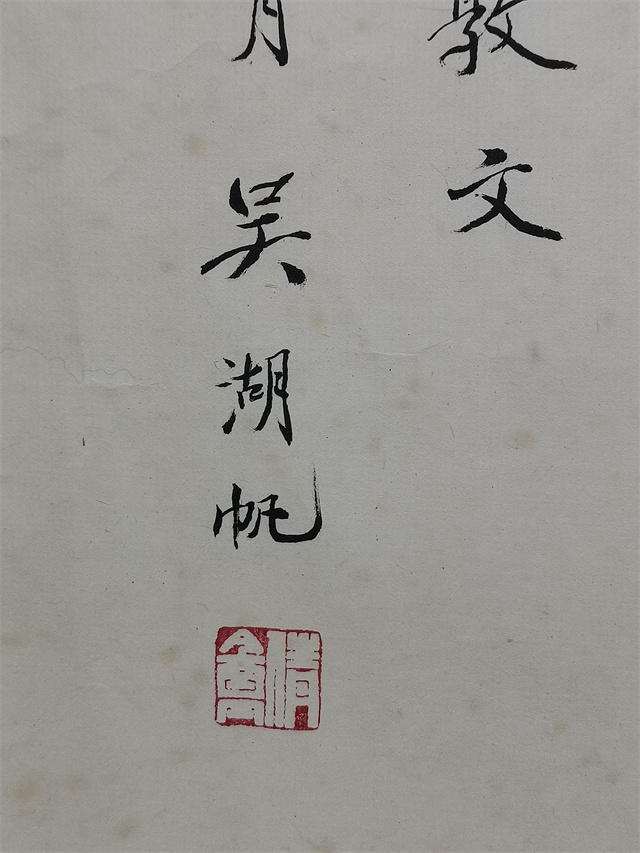 敦文
月吴湖帆
倩盦